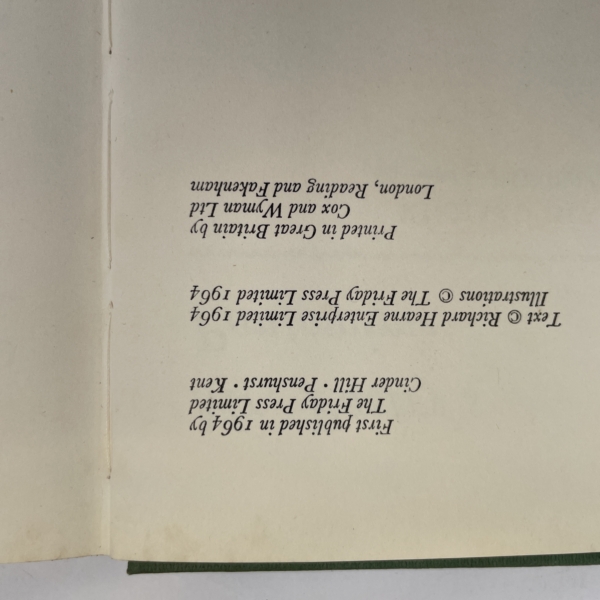 First published in 1964 by
The Friday Press Limited
Cinder Hill · Penshurst · Kent
Text © Richard Hearne Enterprise Limited 1964
Illustrations © The Friday Press Limited 1964
Printed in Great Britain by
Cox and Wyman Ltd
London, Reading and Fakenham